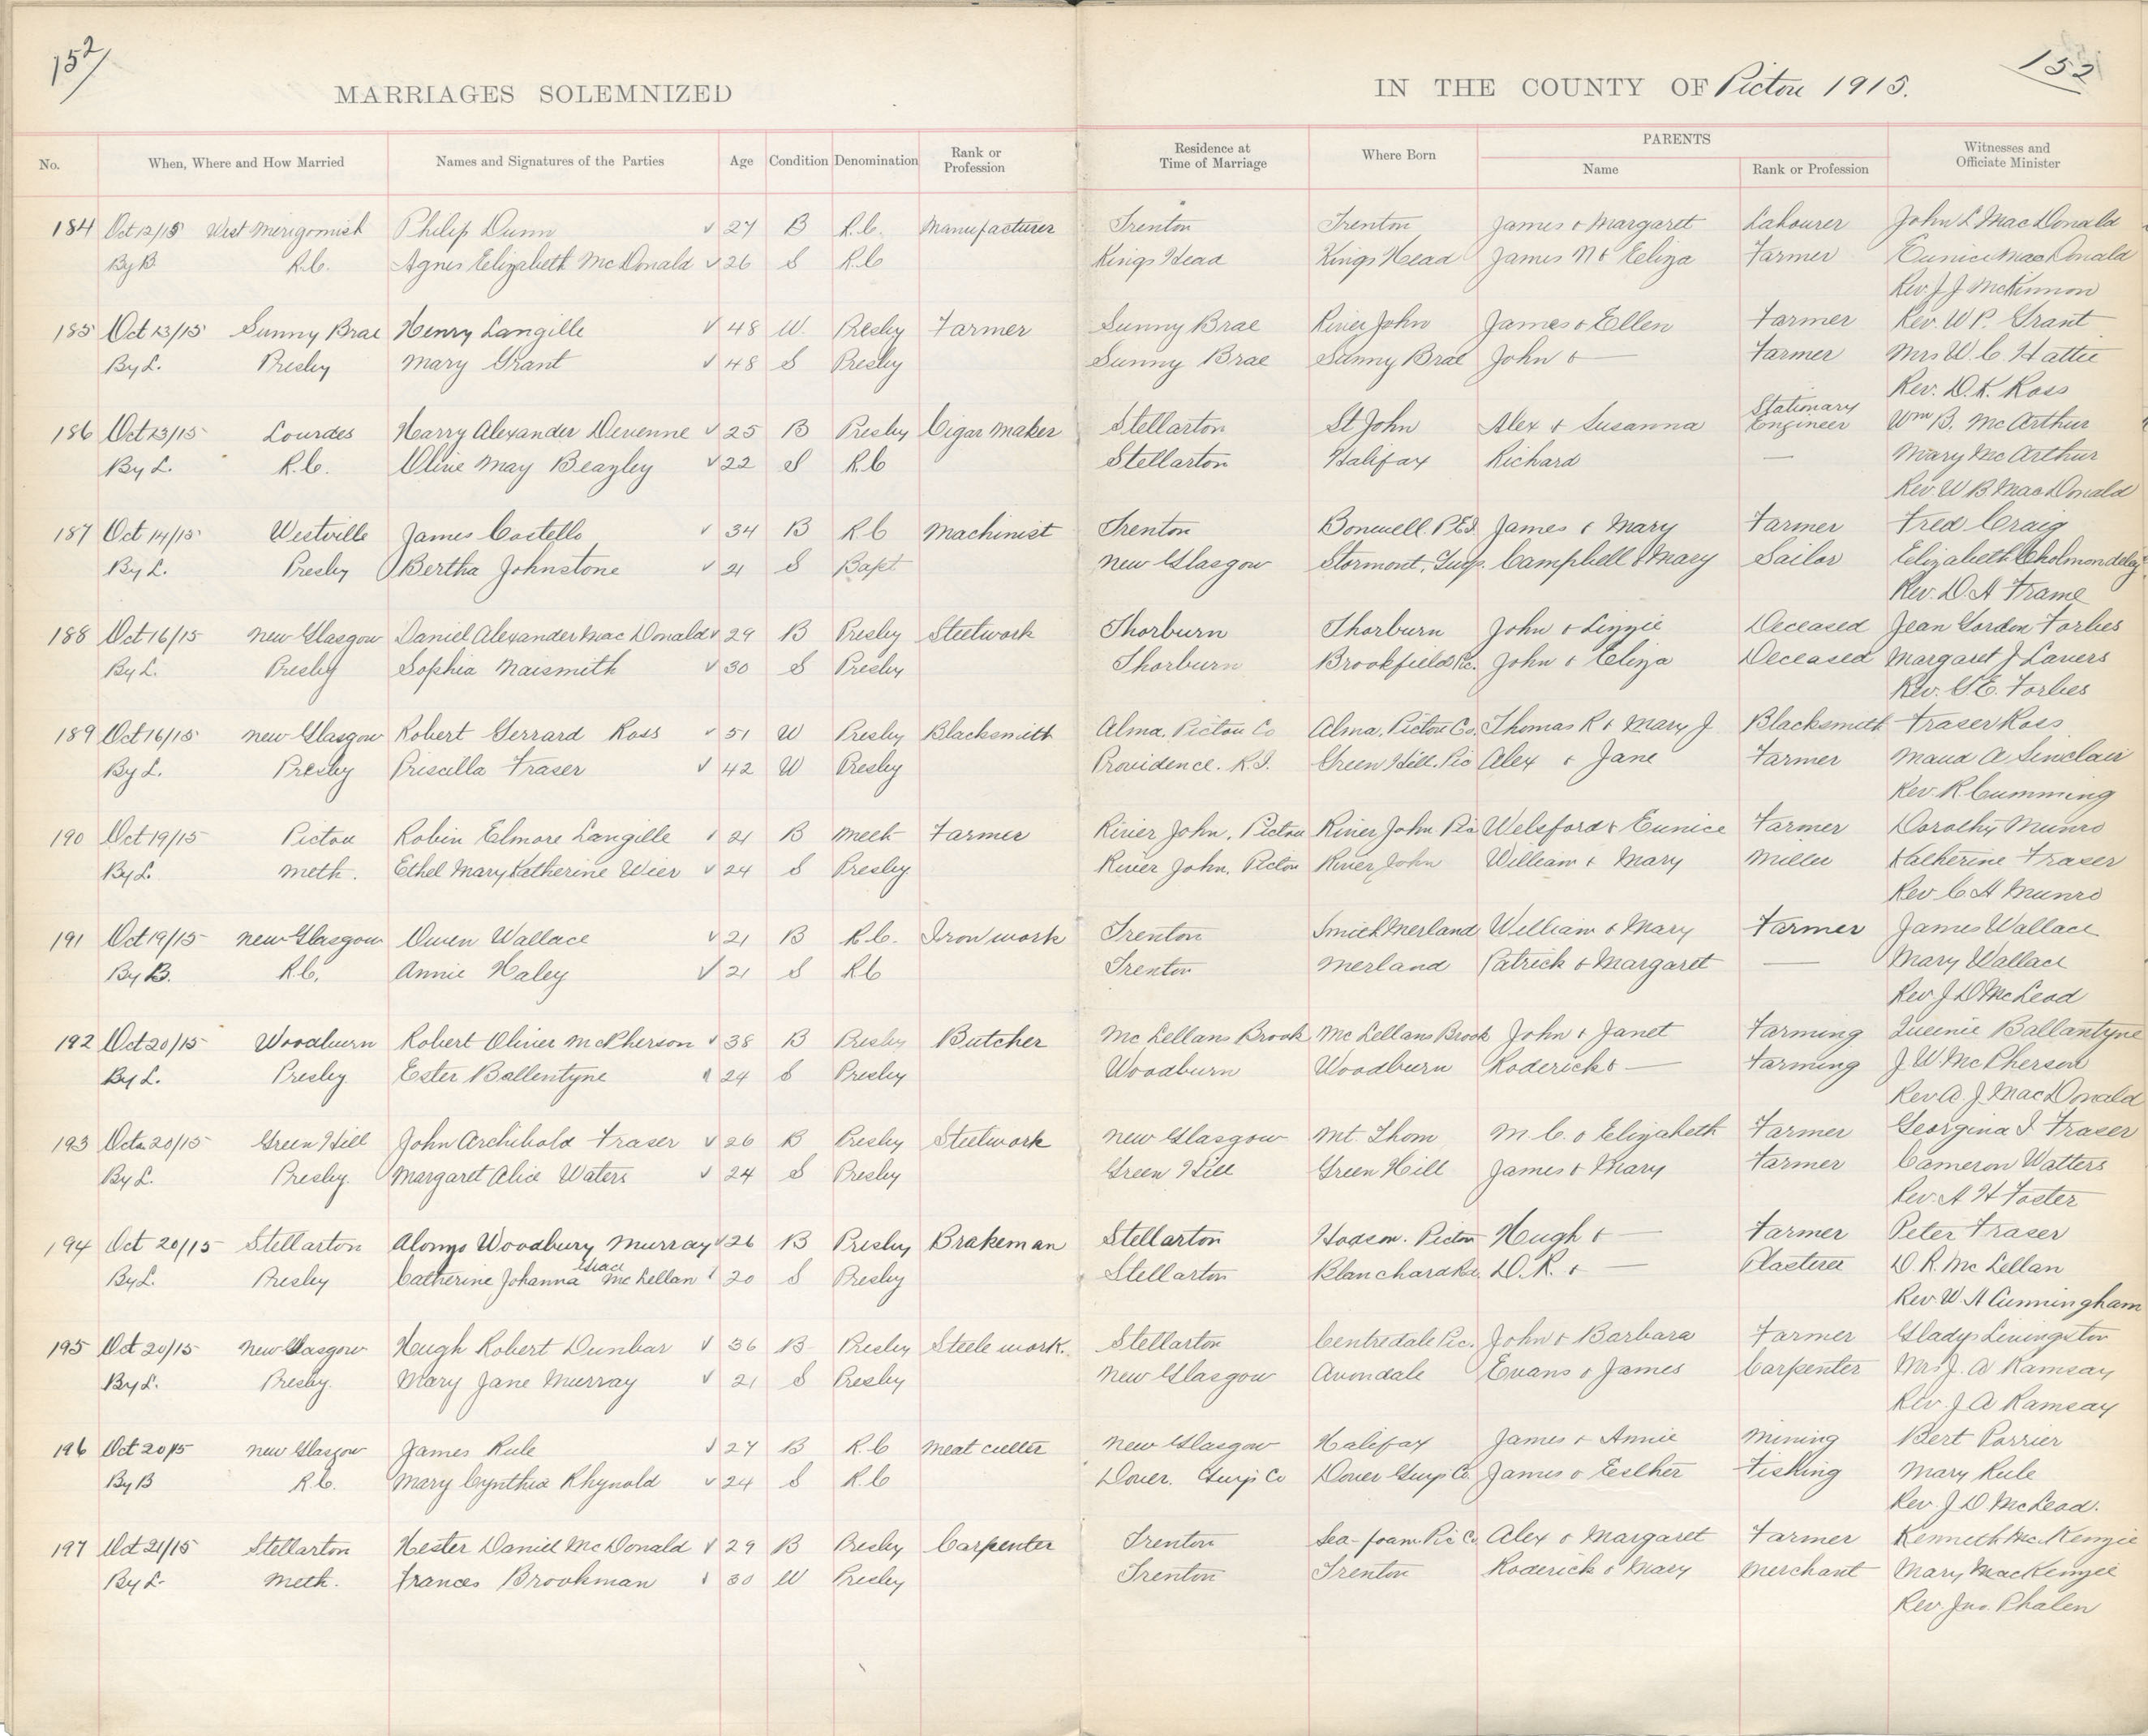 152
152
MARRIAGES SOLEMNIZED
IN THE COUNTY OF Pictou 1915.
No. When, Where and How Married Names and Signatures of the Parties Age Condition Denomination Rank or Profession Residence at Time of Marriage Where Born PARENTS Name Rank or Profession Witnesses and Officiate Minister
184 Oct 12/15 West Merigomish Philip Dunn √ 27 B R.C. Manufacturer Trenton Trenton James & Margaret Labourer John L MacDonald
By B. R.C. Agnes Elizabeth McDonald √ 26 S R.C Kings Head Kings Head James N & Eliza Farmer Eunice MacDonald
Rev. J J McKinnon
185 Oct 13/15 Sunny Brae Henry Langille √ 48 W. Presby Farmer Sunny Brae River John James & Ellen Farmer Rev. W P. Grant
By L. Presby Mary Grant √ 48 S Presby Sunny Brae Sunny Brae John & — Farmer Mrs W C Hattie
Rev. D. K. Ross
186 Oct 13/15 Lourdes Harry Alexander Devenne √ 25 B Presby Cigar Maker Stellarton St John Alex & Susanna Stationary Engineer Wm B. McArthur
By L. R.C. Olive May Beazley √ 22 S R.C Stellarton Halifax Richard — Mary McArthur
Rev. W B MacDonald
187 Oct 14/15 Westville James Costello √ 34 B R C Machinist Trenton P.E.I. James & Mary Farmer Fred Craig
By L. Presby Bertha Johnstone √ 21 S Bapt New Glasgow Stormont, Guys. Campbell & Mary Sailor Elizabeth Cholmondeley
Rev. D. A Frame
188 Oct 16/15 New Glasgow Daniel Alexander MacDonald √ 29 B Presby Steelwork Thorburn Thorburn John & Lizzie Deceased Jean Gordon Forbes
By L. Presby Sophia Naismith √ 30 S Presby Thorburn Brookfield Pic. John & Eliza Deceased Margaret J Lavers
Rev. G E. Forbes
189 Oct 16/15 New Glasgow Robert Gerrard Ross √ 51 W Presby Blacksmith Alma, Pictou Co Alma, Pictou Co. Thomas R & Mary J Blacksmith Fraser Ross
By L. Presby Priscilla Fraser √ 42 W Presby Providence. R.I. Green Hill. Pic Alex & Jane Farmer Maud A Sinclair
Rev. R Cumming
190 Oct 19/15 Pictou Robin Elmore Langille √ 21 B Meth Farmer River John, Pictou River John Pic Welsford & Eunice Farmer Dorothy Munro
By L. Meth. Ethel Mary Katherine Wier √ 24 S Presby River John, Pictou River John William & Mary Miller Katherine Fraser
Rev C H Munro
191 Oct 19/15 New Glasgow Owen Wallace √ 21 B R.C. Iron work Trenton Merland William & Mary Farmer James Wallace
By B. R.C. Annie Haley √ 21 S R.C Trenton Merland Patrick & Margaret — Mary Wallace
Rev J D McLeod
192 Oct 20/15 Woodburn Robert Oliver McPherson √ 38 B Presby Butcher McLellans Brook McLellans Brook John & Janet Farming Queenie Ballantyne
By L. Presby Ester Ballentyne √ 24 S Presby Woodburn Woodburn Roderick & — Farming J W McPherson
Rev A. J. MacDonald
193 Oct 20/15 Green Hill John Archibald Fraser √ 26 B Presby Steelwork New Glasgow Mt. Thom M. C. & Elizabeth Farmer Georgina I Fraser
By L. Presby. Margaret Alice Waters √ 24 S Presby Green Hill Green Hill James & Mary Farmer Cameron Watters
Rev. A H Foster
194 Oct 20/15 Stellarton Alonzo Woodbury Murray √ 26 B Presby Brakeman Stellarton Hodson. Pictou Hugh & — Farmer Peter Fraser
By L. Presby Catherine Johanna Grace McLellan √ 20 S Presby Stellarton Blanchard D. R. & — Plasterer D. R. McLellan
Rev. W. A Cunningham
195 Oct 20/15 New Glasgow Hugh Robert Dunbar √ 36 B Presby Steele work. Stellarton Centredale Pic. John & Barbara Farmer Gladys Livingston
By L. Presby. Mary Jane Murray √ 21 S Presby New Glasgow Avondale Evans & James Carpenter Mrs J. A Ramsay
Rev. J A Ramsay
196 Oct 20/15 New Glasgow James Rule √ 27 B R.C Meat cutter New Glasgow Halifax James & Annie Mining Bert Porrier
By B R.C. Mary Cynthia Rhynold √ 24 S R.C Dover. Guys Co Dover Guys Co James & Esther Fishing Mary Rule
Rev. J D McLeod.
197 Oct 21/15 Stellarton Hester Daniel McDonald √ 29 B Presby Carpenter Trenton Sea-foam Pic Co Alex & Margaret Farmer Kenneth McKenzie
By L. Meth. Frances Brookman √ 30 W Presby Trenton Trenton Roderick & Mary Merchant Mary MacKenzie
Rev. Jno. Phalen